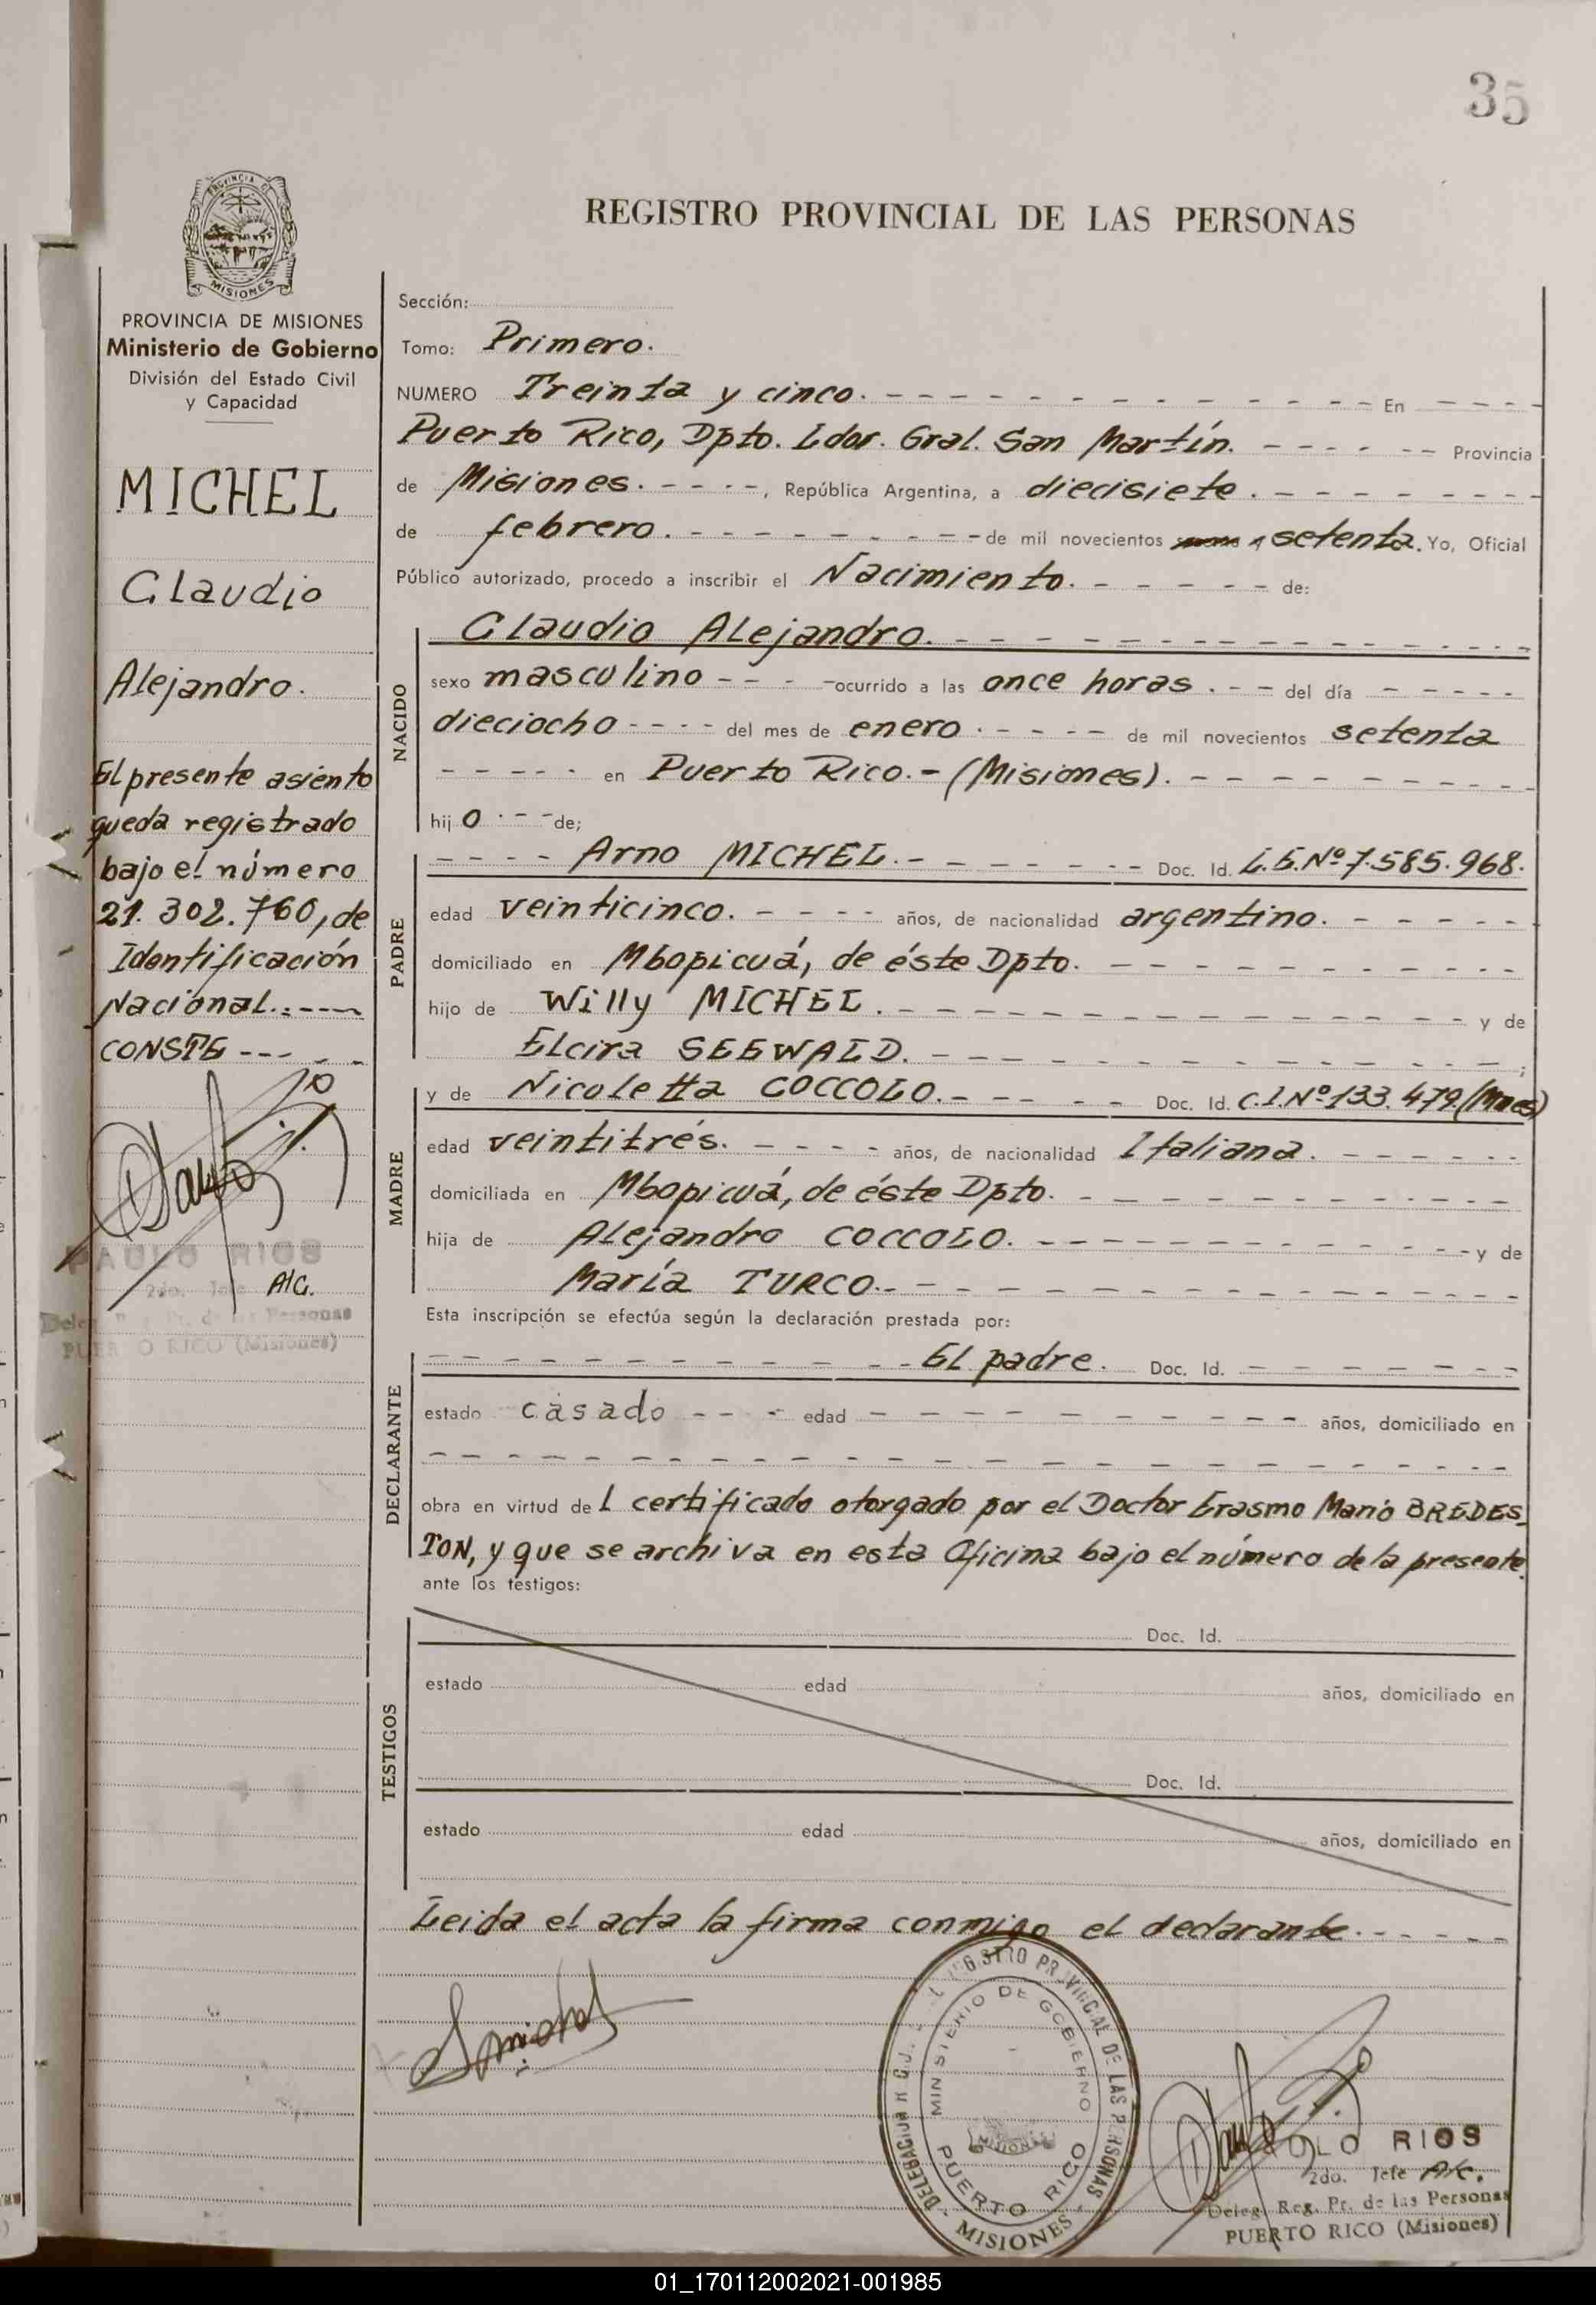 35
PROVINCIA DE
MISIONES
PROVINCIA DE MISIONES
Ministerio de Gobierno
División del Estado Civil
y Capacidad
MICHEL
Claudio
Alejandro.
El presente asiento
queda registrado
bajo el número
21.302.760, de
Identificación
Nacional.:----
CONSTE --- - -
PAULO RIOS
2do. Jefe A/C.
Deleg. Reg. Pr. de las Personas
PUERTO RICO (Misiones)
REGISTRO PROVINCIAL DE LAS PERSONAS
Sección:
Tomo: Primero.
NUMERO Treinta y cinco. - - - En - - -
Puerto Rico, Dpto. Ldor. Gral. San Martín. - - - Provincia
de Misiones. - - - -, República Argentina, a diecisiete. - - -
de febrero. - - - de mil novecientos setenta. Yo, Oficial
Público autorizado, procedo a inscribir el Nacimiento. - - - de:
NACIDO
Claudio Alejandro. - - -
sexo masculino - - - ocurrido a las once horas. - - del día - - -
dieciocho - - - - del mes de enero. - - - de mil novecientos setenta
- - - - en Puerto Rico. - (Misiones). - - -
hij o. - - de;
PADRE
- - - - Arno MICHEL. - - - Doc. Id. L.E.Nº 7.585.968.
edad veinticinco. - - - - años, de nacionalidad argentino. - - -
domiciliado en Mbopicuá, de éste Dpto. - - -
hijo de Willy MICHEL. - - - y de
Elcira SEEWALD. - - - ;
MADRE
y de Nicoletta COCCOLO. - - - Doc. Id. C.I.Nº 133.479.(Mnes)
edad veintitrés. - - - - años, de nacionalidad Italiana. - - -
domiciliada en Mbopicuá, de éste Dpto. - - -
hija de Alejandro COCCOLO. - - - y de
María TURCO.- - - -
Esta inscripción se efectúa según la declaración prestada por:
DECLARANTE
- - - El padre. Doc. Id. - - -
estado casado - - - edad - - - años, domiciliado en
- - -
obra en virtud de l certificado otorgado por el Doctor Erasmo Mario BREDES_
TON, y que se archiva en esta Oficina bajo el número de la presente.
ante los testigos:
TESTIGOS
Doc. Id.
estado edad años, domiciliado en
Doc. Id.
estado edad años, domiciliado en
Leida el acta la firma conmigo el declarante. - - -
REGISTRO PROVINCIAL DE LAS PERSONAS
MINISTERIO DE GOBIERNO
MISIONES
PUERTO RICO
- MISIONES -
PAULO RIOS
2do. Jefe A/C.
Deleg. Reg. Pr. de las Personas
PUERTO RICO (Misiones)
01_170112002021-001985